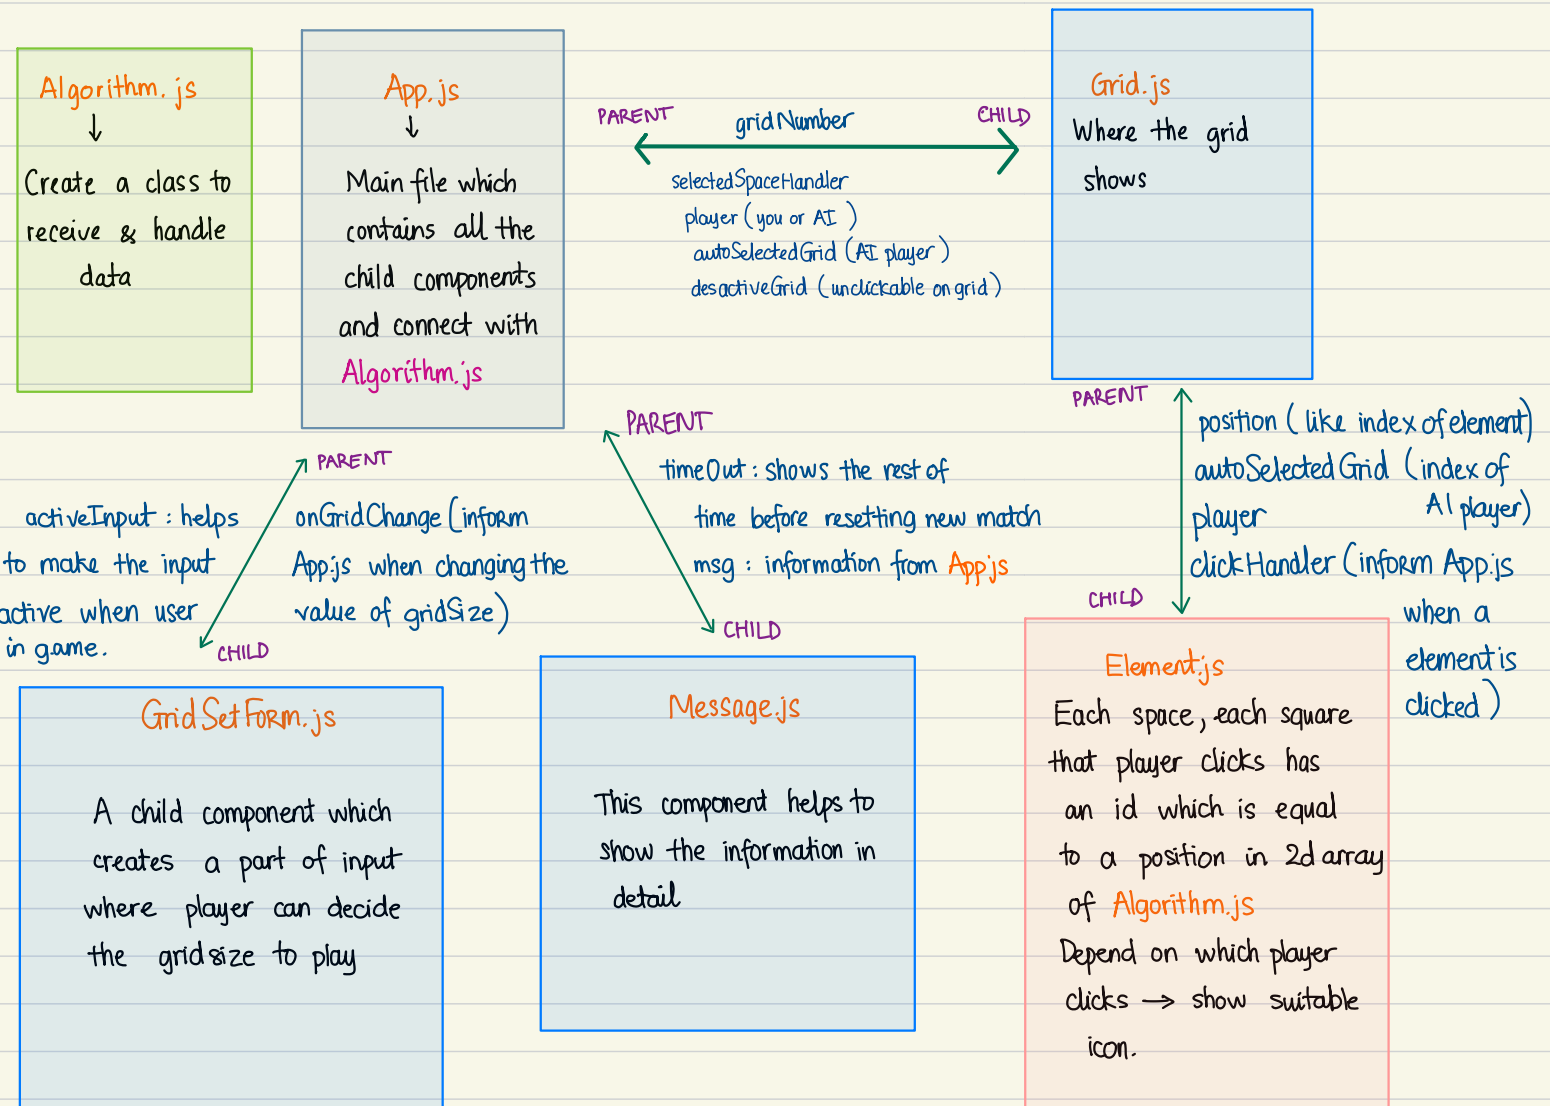 Algorithm.js
↓
Create a class to
receive & handle
data
App.js
↓
Main file which
contains all the
child components
and connect with
Algorithm.js
PARENT
gridNumber
CHILD
selectedSpaceHandler
player (you or AI)
autoSelectedGrid (AI player)
desactiveGrid (unclickable on grid)
Grid.js
Where the grid
shows
PARENT
activeInput : helps
to make the input
active when user
in game.
onGridChange (inform
App.js when changing the
value of gridSize)
CHILD
PARENT
timeOut : shows the rest of
time before resetting new match
msg : information from App.js
CHILD
PARENT
position (like index of element)
autoSelectedGrid (index of
AI player)
player
clickHandler (inform App.js
when a
element is
clicked)
CHILD
GridSetForm.js
A child component which
creates a part of input
where player can decide
the gridsize to play
Message.js
This component helps to
show the information in
detail
Element.js
Each space, each square
that player clicks has
an id which is equal
to a position in 2d array
of Algorithm.js
Depend on which player
clicks → show suitable
icon.